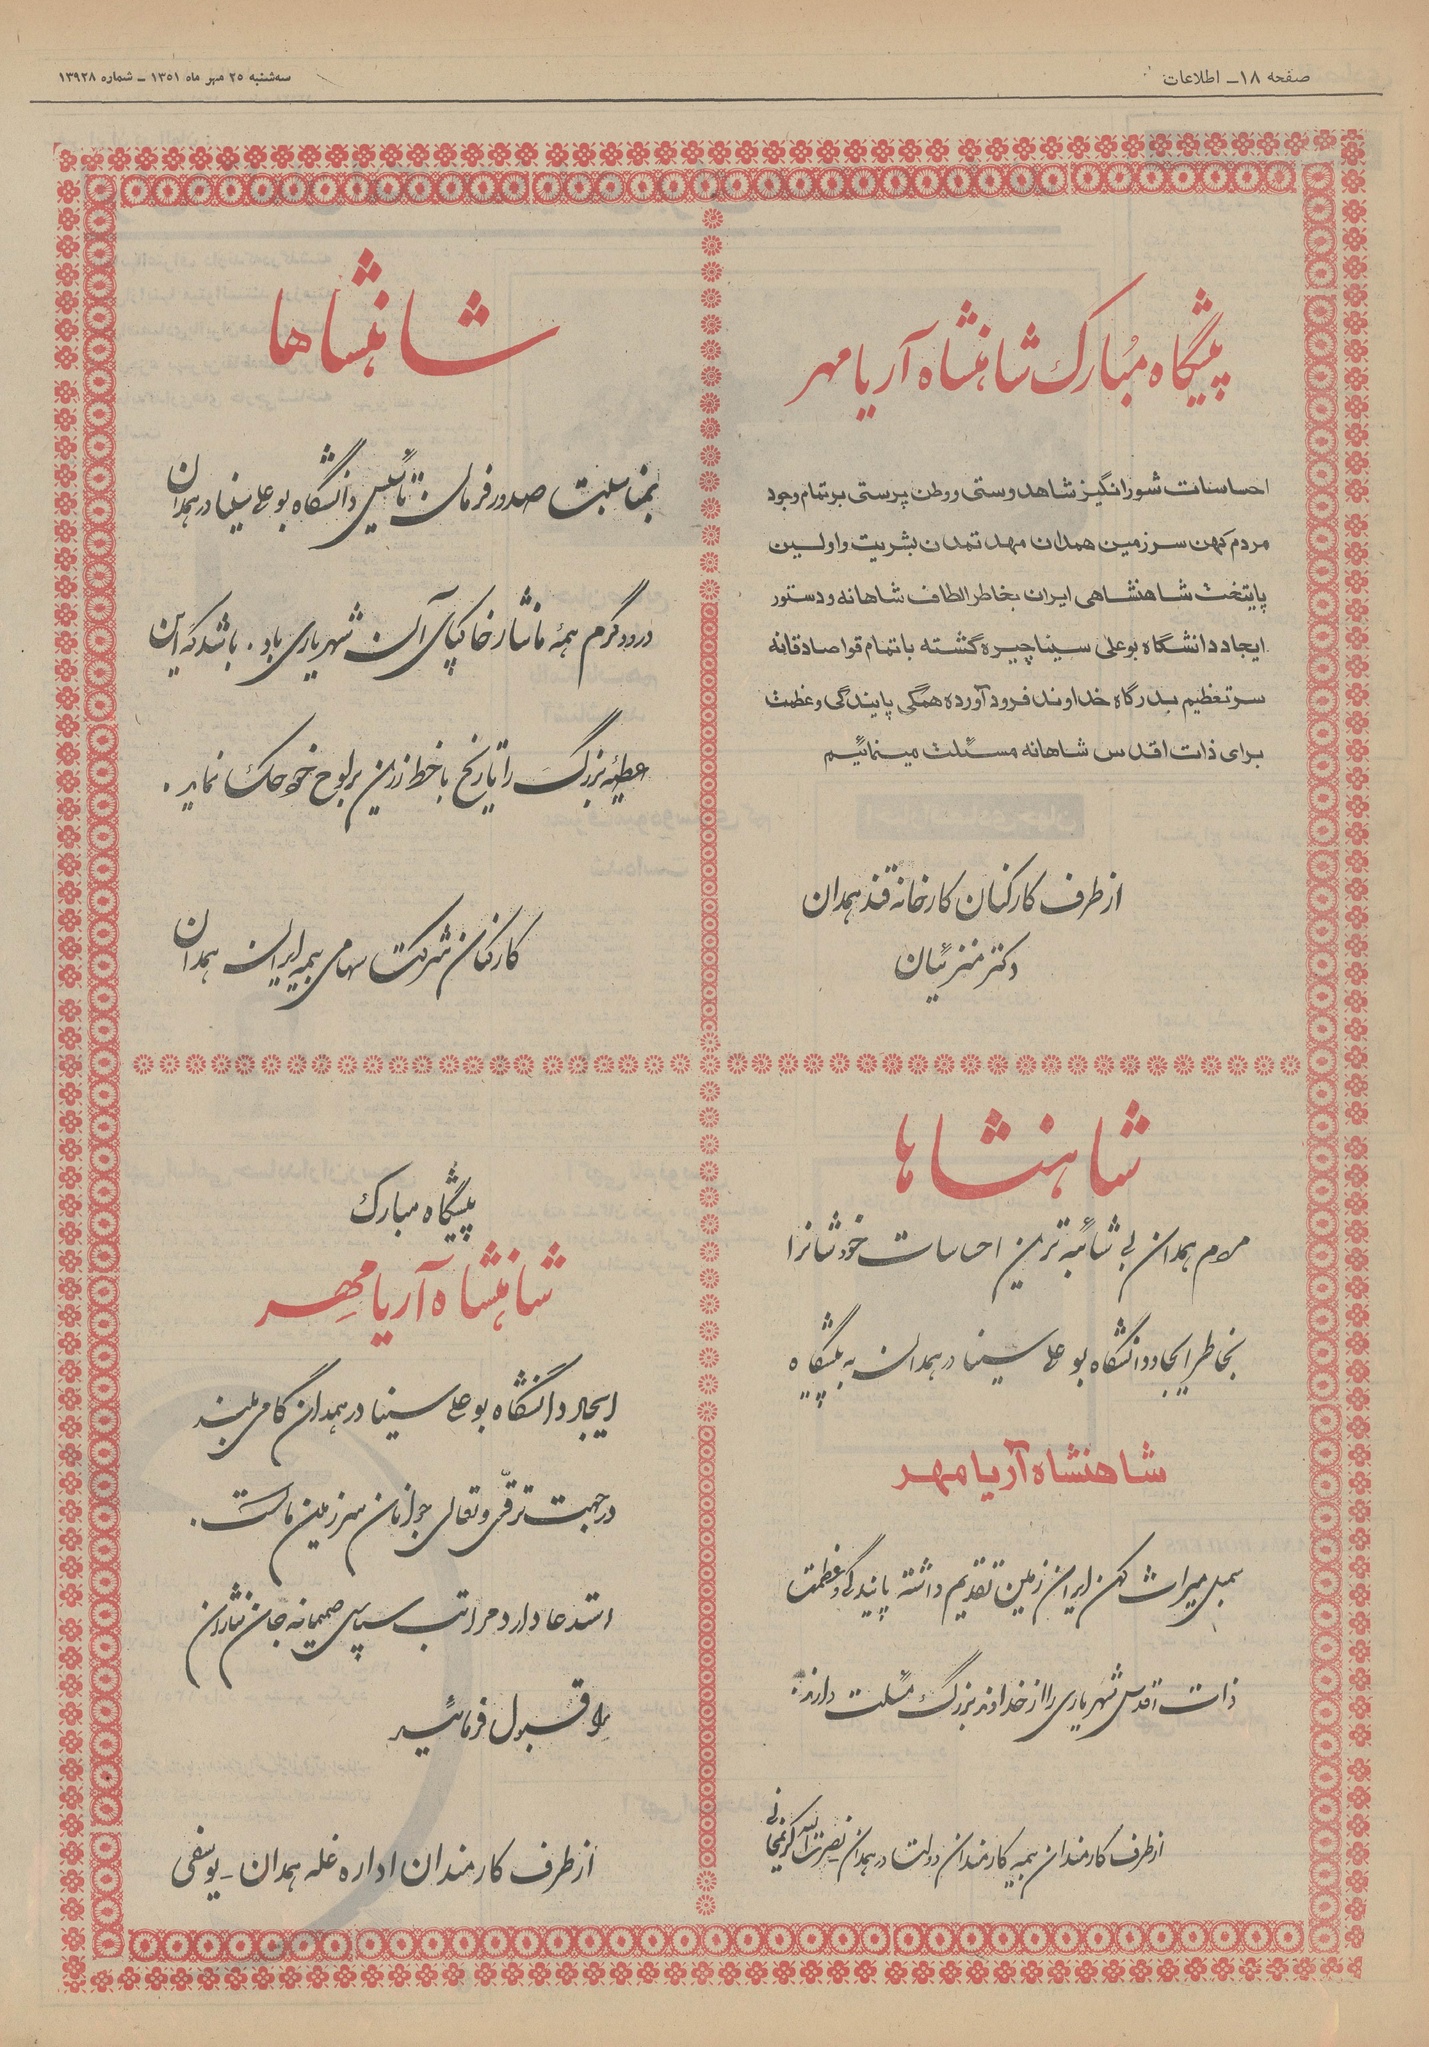 صفحه ۱۸ـ اطلاعات
سه‌شنبه ۲۵ مهر ماه ۱۳۵۱ ـ شماره ۱۳۹۲۸
پیشگاه مبارک شاهنشاه آریامهر
احساسات شورانگیز شاهدوستی ووطن پرستی برتمام وجود
مردم کهن سرزمین همدان مهد تمدن بشریت واولین
پایتخت شاهنشاهی ایران بخاطرالطاف شاهانه ودستور
ایجاددانشگاه بوعلی سیناچیره گشته باتمام قواصادقانه
سرتعظیم بدرگاه خداوندفرودآورده همگی پایندگی وعظمت
برای ذات اقدس شاهانه مسئلت مینمائیم
ازطرف کارکنان کارخانه قند همدان
دکتر
شاهنشاها
بمناسبت صدور فرمان تأسیس دانشگاه بوعلی سینا در همدان
درود گرم همهٔ ما نثار خاکپای آن شهریاری باد. باشد که این
عطیه بزرگ را تاریخ با خط زرین بر لوح خود حک نماید.
کارکنان شرکت سهامی بیمه ایران همدان
شاهنشاها
مردم همدان بی شائبه ترین احساسات خودشانرا
بخاطر ایجاد دانشگاه بوعلی سینا در همدان به پیشگاه
شاهنشاه آریامهر
سمبل میراث کهن ایران زمین تقدیم داشته پایندگی وعظمت
ذات اقدس شهریاری را از خداوند بزرگ مسئلت دارند.
از طرف کارمندان بیمه کارمندان دولت در همدان ـ نصرت الله
پیشگاه مبارک
شاهنشاه آریامهر
ایجاد دانشگاه بوعلی سینا در همدان گامی بلند
در جهت ترقی و تعالی جوانان سرزمین ماست.
استدعا دارد مراتب سپاس صمیمانه جان نثاران
را قبول فرمائید
از طرف کارمندان اداره غله همدان ـ یوسفی